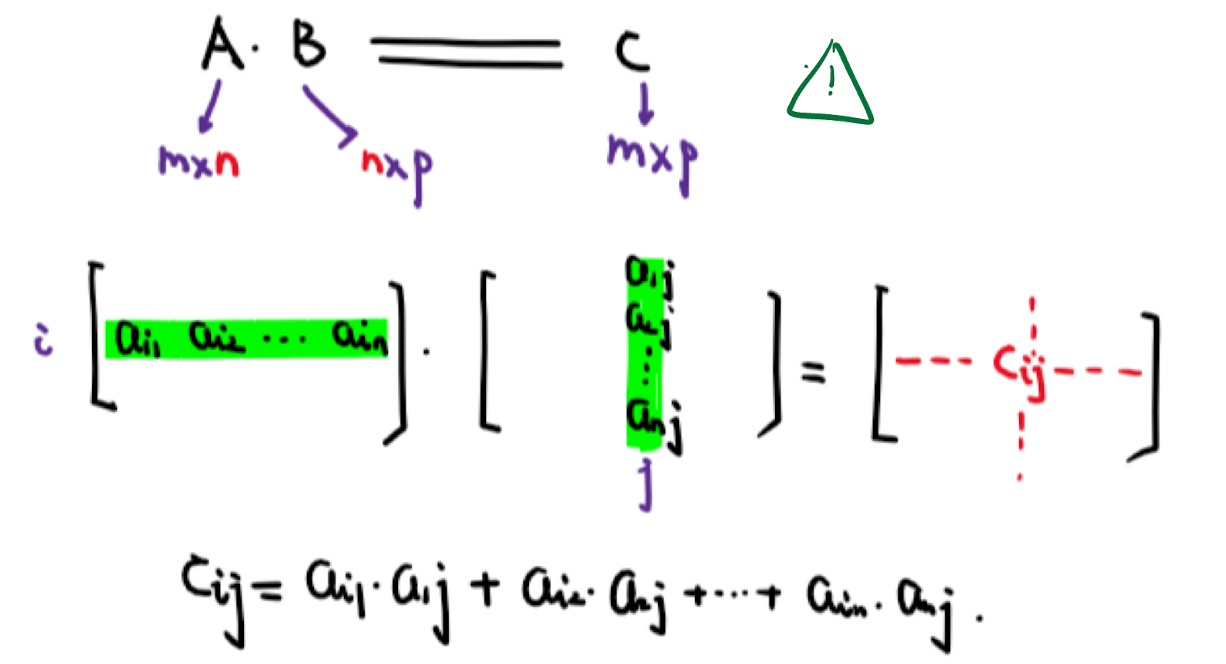 A · B = C
!
m×n n×p m×p
i [ ai1 ai2 ··· ain ] · [ a1j a2j ⋮ anj ] = [ --- cij --- ]
j
cij = ai1 · a1j + ai2 · a2j + ··· + ain · anj .